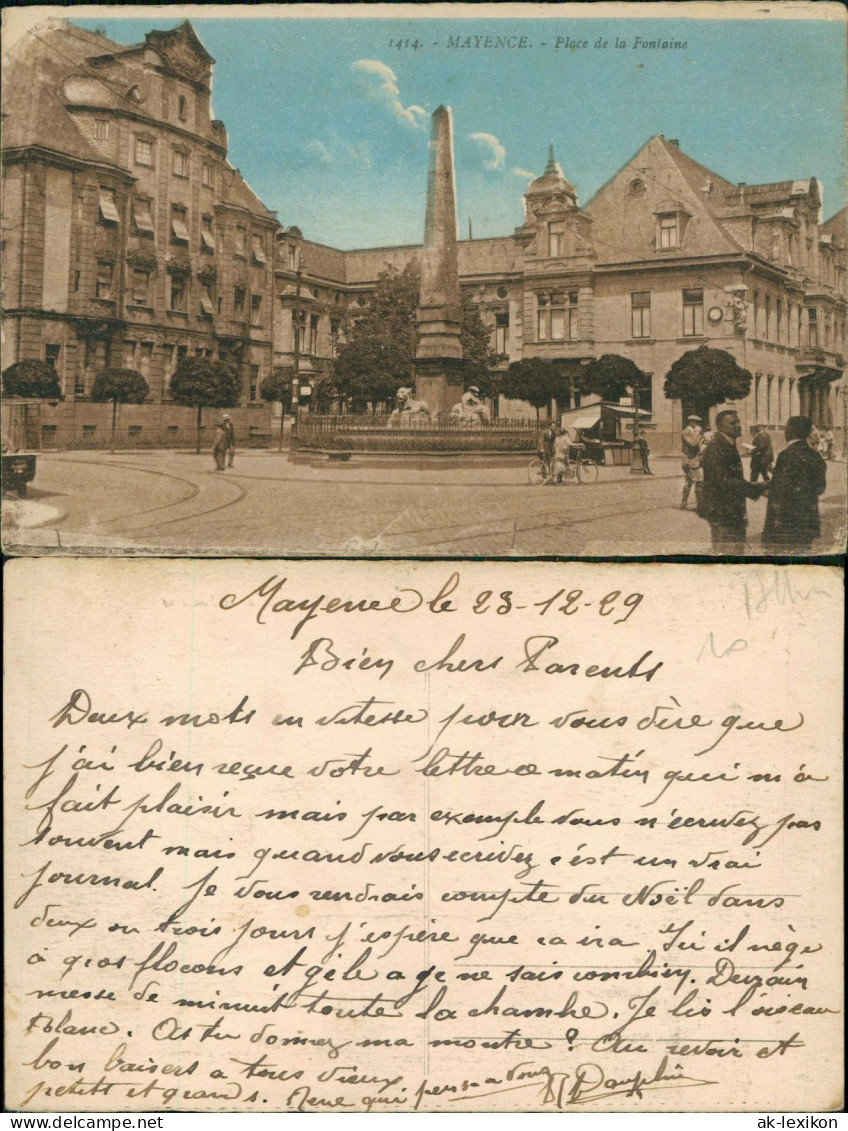 1414. - MAYENCE. - Place de la Fontaine
Mayence le 23-12-29
Bien chers Parents
Deux mots en vitesse pour vous dire que
j'ai bien reçue votre lettre ce matin qui m'a
fait plaisir mais par exemple vous n'écrivez pas
souvent mais quand vous ecrivez c'est un vrai
journal. Je vous rendrais compte du Noël dans
deux ou trois jours j'espère que ca ira. Ici il nège
a gros flocons et gèle a je ne sais combien. Demain
messe de minuit toute la chambe. Je lis l'oiseau
blanc. As tu donnez ma montre? Au revoir et
bon baisers a tous vieux
petits et grands. René qui pense a vous
Dauphin
ak-lexikon
Copyright : www.delcampe.net